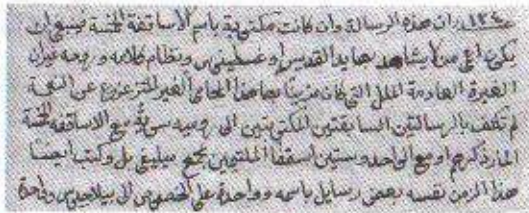 ١٢٤٠ ان هذه الرسالة وان كانت مكتوبة باسم الاساقفة الخمسة فينبغي ان
يكون من يشاهد بها يد القديس اوغسطينس ونظام كلامه وروحه غير ان
الغيرة العادمة الملل التي كان مزينا بها هذا المحامي الغير المتزعزع عن النعمة
لم تكتف بالرسالتين السابقتين المكتوبتين الى رومية سوية مع الاساقفة الخمسة
المار ذكرهم او مع الواحد وستين اسقفا الملتيمين بمجمع ميليفي بل وكتب ايضا
هذا الزمن نفسه بعض رسايل باسمه وواحدة على الخصوص الى بيلاجيوس واحدة